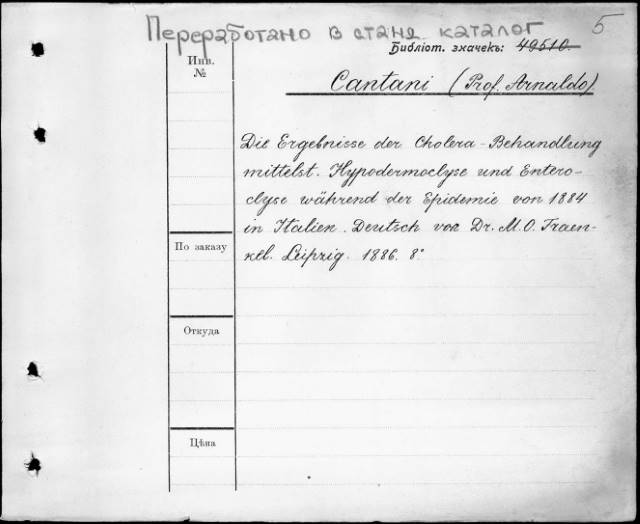 Переработано в станд. каталог 5
Библіот. значекъ: 49510.
Инв.
№
Cantani (Prof. Arnaldo)
Die Ergebnisse der Cholera-Behandlung
mittelst. Hypodermoclyse und Entero-
clyse während der Epidemie von 1884
in Italien. Deutsch von Dr. M. O. Fraen-
kel. Leipzig. 1886. 8°
По заказу
Откуда
Цѣна